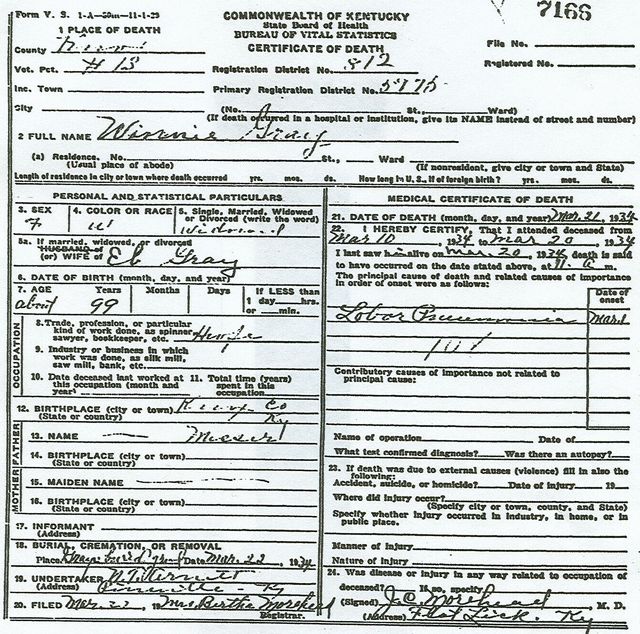 Form V. S. 1-A—50m—11-1-29
COMMONWEALTH OF KENTUCKY
State Board of Health
BUREAU OF VITAL STATISTICS
CERTIFICATE OF DEATH
7166
1 PLACE OF DEATH
County
File No.
Vot. Pct. # 13
Registration District No. 812
Registered No.
Inc. Town
Primary Registration District No. 5975
City
(No. St., Ward)
(If death occurred in a hospital or institution, give its NAME instead of street and number)
2 FULL NAME Winnie Gray
(a) Residence. No. St., Ward
(Usual place of abode)
(If nonresident, give city or town and State)
Length of residence in city or town where death occurred yrs. mos. ds. How long in U. S., if of foreign birth? yrs. mos. ds.
PERSONAL AND STATISTICAL PARTICULARS
3. SEX
F
4. COLOR OR RACE
W
5. Single, Married, Widowed or Divorced (write the word)
Widowed
5a. If married, widowed, or divorced
HUSBAND of
(or) WIFE of Eb Gray
6. DATE OF BIRTH (month, day, and year)
7. AGE Years Months Days If LESS than
1 day hrs.
or min.
about 99
OCCUPATION
8. Trade, profession, or particular
kind of work done, as spinner,
sawyer, bookkeeper, etc.
9. Industry or business in which
work was done, as silk mill,
saw mill, bank, etc.
10. Date deceased last worked at
this occupation (month and
year)
11. Total time (years)
spent in this
occupation
12. BIRTHPLACE (city or town) Knox Co
(State or country) Ky
FATHER
13. NAME
14. BIRTHPLACE (city or town)
(State or country)
MOTHER
15. MAIDEN NAME
16. BIRTHPLACE (city or town)
(State or country)
17. INFORMANT
(Address)
18. BURIAL, CREMATION, OR REMOVAL
Place Date Mar. 22, 1934
19. UNDERTAKER
(Address) Pineville - Ky
20. FILED Mar. 22, Mrs Bertha Morehead
Registrar.
MEDICAL CERTIFICATE OF DEATH
21. DATE OF DEATH (month, day, and year) Mar. 21, 1934
22. I HEREBY CERTIFY, That I attended deceased from
Mar 10, 1934 to Mar 20, 1934
I last saw h alive on Mar. 20, 1934, death is said
to have occurred on the date stated above, at 11. a. m.
The principal cause of death and related causes of importance
in order of onset were as follows:
Date of
onset
Lobar Pneumonia
Mar. 1
101
Contributory causes of importance not related to
principal cause:
Name of operation Date of
What test confirmed diagnosis? Was there an autopsy?
23. If death was due to external causes (violence) fill in also the
following:
Accident, suicide, or homicide? Date of injury 19
Where did injury occur?
(Specify city or town, county, and State)
Specify whether injury occurred in industry, in home, or in
public place.
Manner of injury
Nature of injury
24. Was disease or injury in any way related to occupation of
deceased? If so, specify
(Signed) J. C. Morehead, M. D.
(Address) Flat Lick. Ky